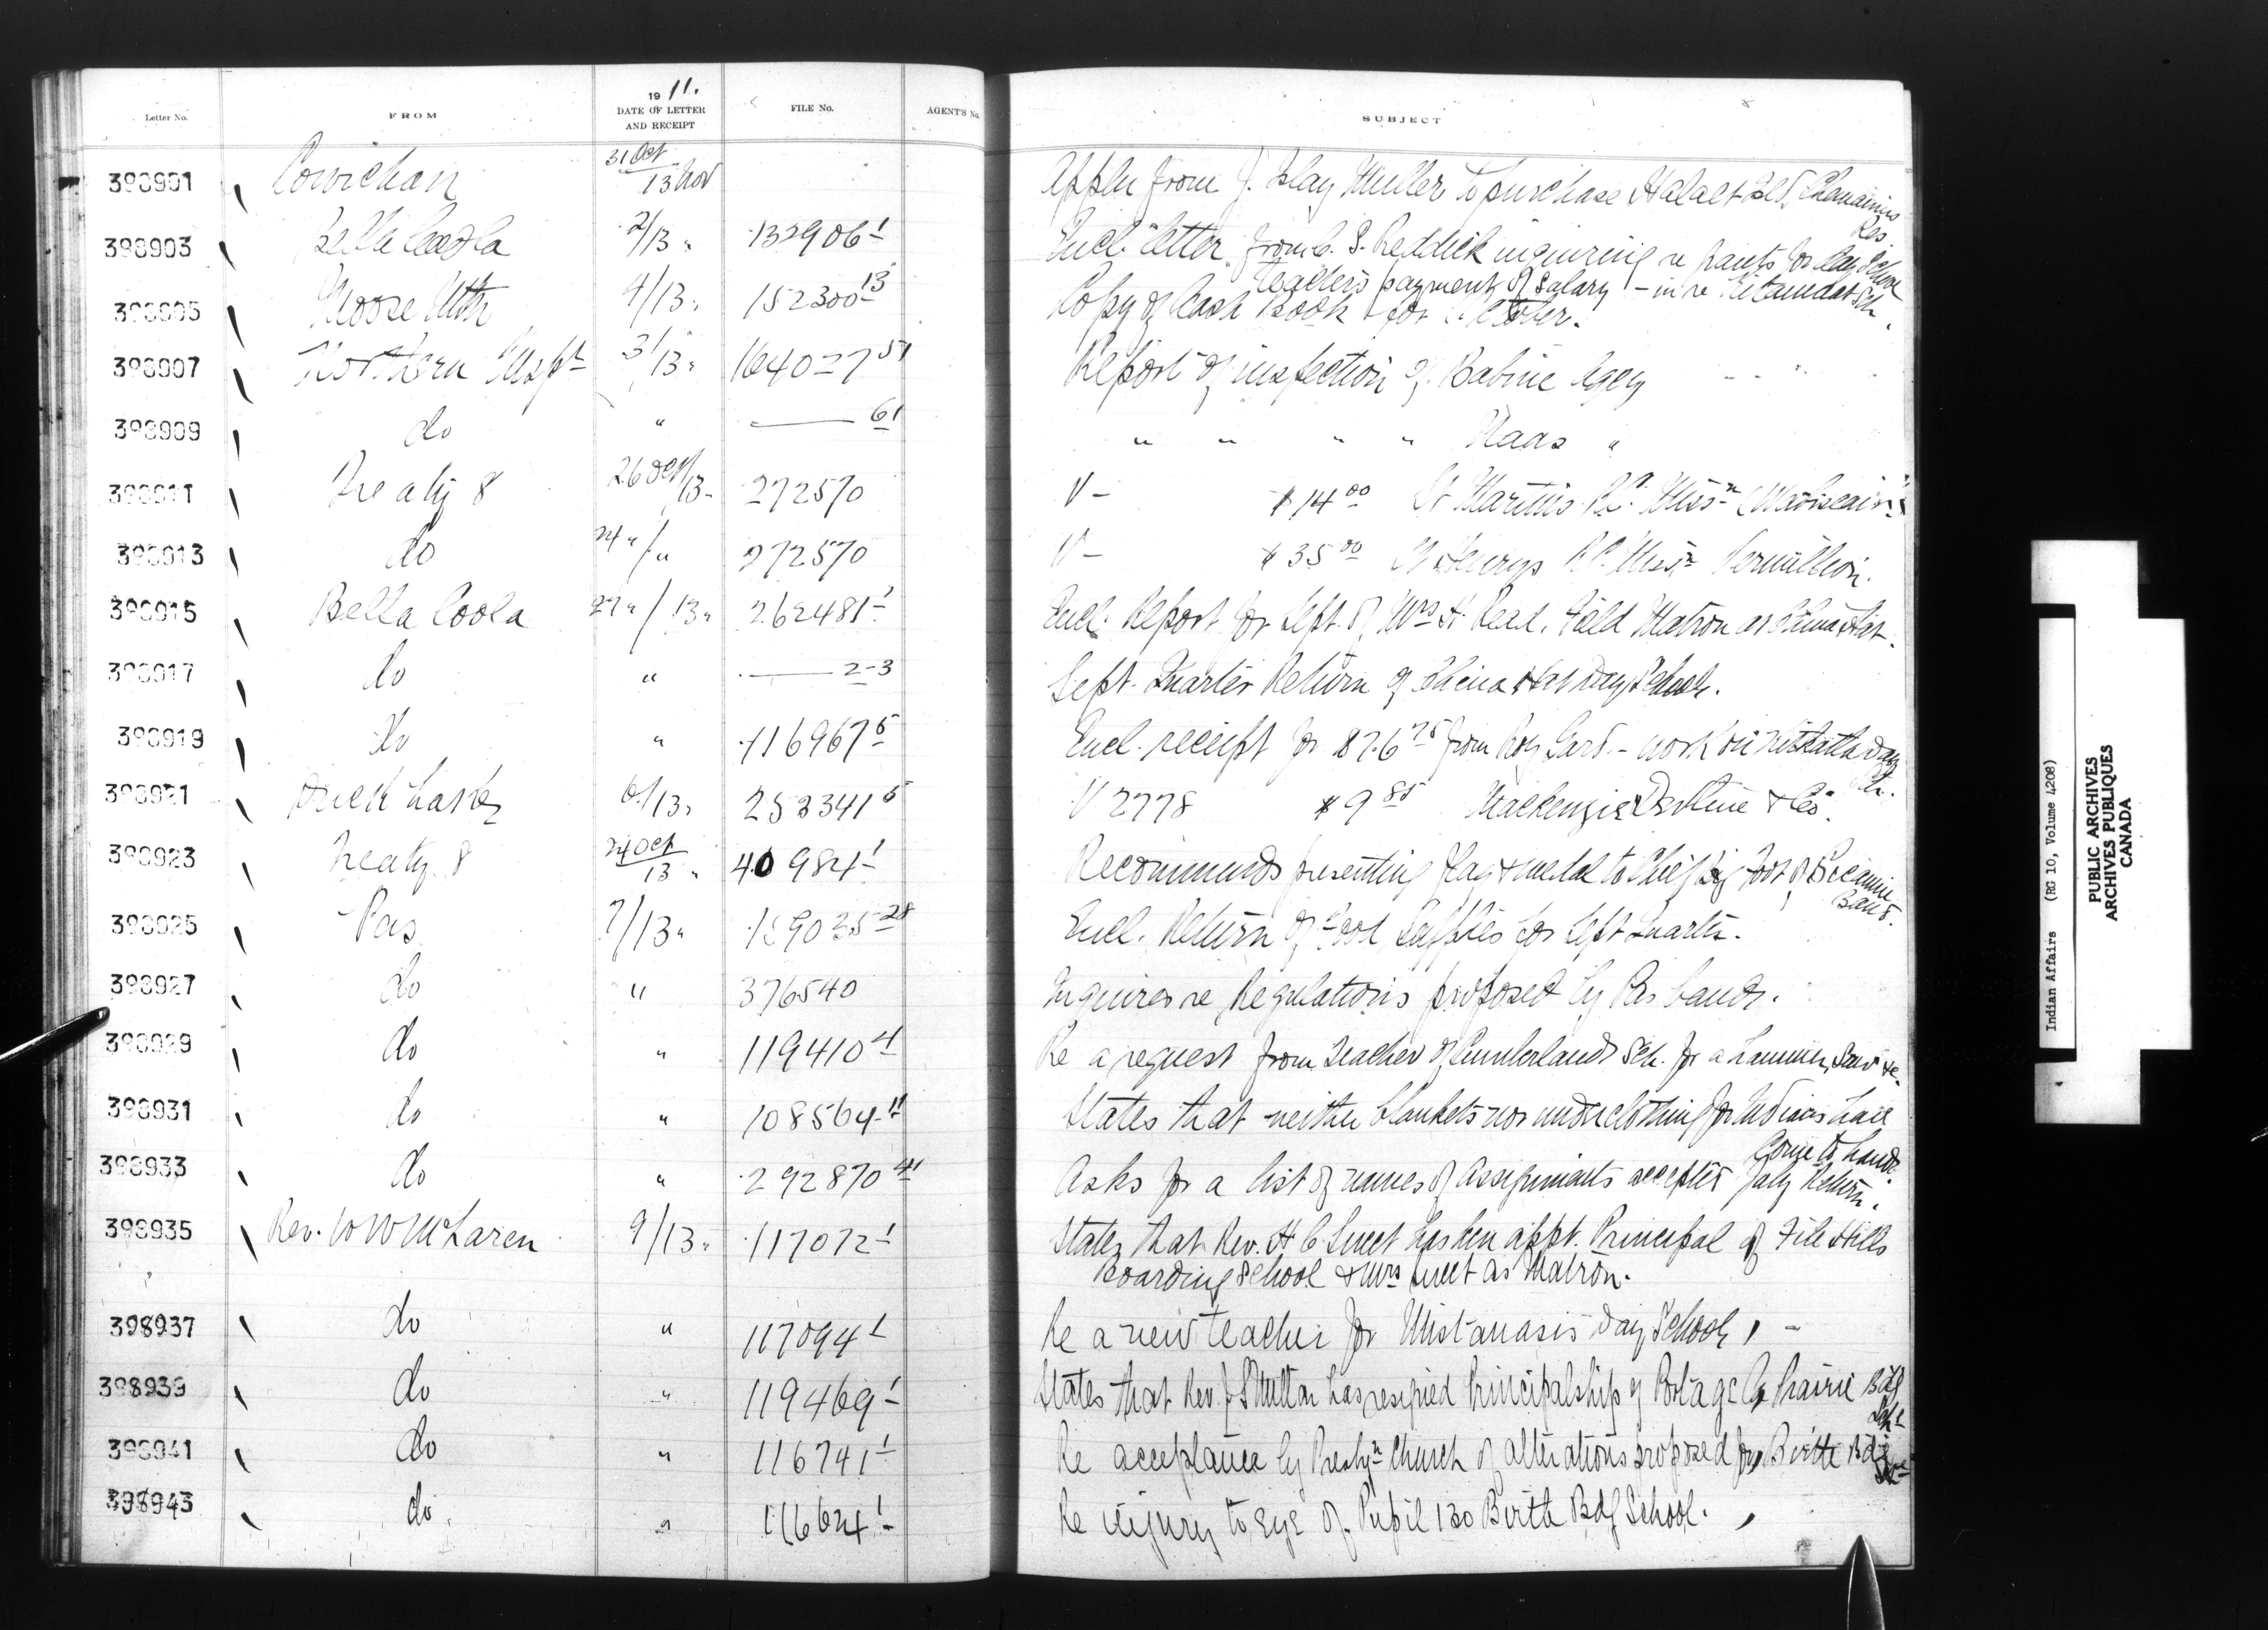 Letter No. FROM 1911. DATE OF LETTER AND RECEIPT FILE No. AGENT'S No. SUBJECT
398901 Cowichan 31 Oct / 13 Nov Appln from J. Islay Mutter to purchase Halalt Isld, Chemainus Res.
398903 Bella Coola 2/13 " 132906-1 Encl. letter from C. S. Reddick inquiring re grants for day school teachers payment of salary - in re Kitamaat Sch.
398905 Moose Mtn 4/13 " 152300-13 Copy of Cash Book for October.
398907 Northern Inspt 3/13 " 164027-51 Report of inspection of Babine Agcy
398909 do " —— 61 " " " " Naas "
398911 Treaty 8 26 Oct/13 " 272570 V - $14 00 St Martins R.C. Missn
398913 do 24 " / " 272570 V - $35 00 St Henrys R.C. Missn Vermillion.
398915 Bella Coola 27 " / 13 " 262481-1 Encl. Report for Sept. of Mrs H. Read, Field Matron at China Hat.
398917 do " —— 2-3 Sept. Quarter Return of China Hat Day School.
398919 do " 116967-5 Encl. receipt for $76 75 from Roy - work on Day Sch.
398921 6/13 " 253341-5 V 2778 $9 85 Mackenzie & Co.
398923 Treaty 8 24 Oct / 13 " 40984-1 Recommends presenting flag & medal to Chief Big Foot of Band.
398925 Pas 7/13 " 159035-28 Encl. Return of Food Supplies for Sept Quarter.
398927 do " 376540 Inquires re Regulations proposed by Pas band.
398929 do " 119410-4 Re a request from Teacher of Cumberland Sch. for a hammer, saw &c.
398931 do " 108564-11 States that neither blankets nor underclothing for Indians have come to hand.
398933 do " 292870-41 Asks for a list of names of assignments accepted July Return.
398935 Rev. W W McLaren 9/13 " 117072-1 States that Rev. H C Sweet has been appt. Principal of File Hills
Boarding School & Mrs Sweet as Matron.
398937 do " 117094-1 Re a new teacher for Mistawasis Day School, -
398939 do " 119469-1 States that Rev. J S Muttan has resigned Principalship of Portage la Prairie Bdg Sch.
398941 do " 116741-1 Re acceptance by Presbyn Church of alterations proposed for Birtle Bdg Sch.
398943 do " 116624-1 Re injury to eye of Pupil 130 Birtle Bdg School.
Indian Affairs (RG 10, Volume 4208)
PUBLIC ARCHIVES
ARCHIVES PUBLIQUES
CANADA